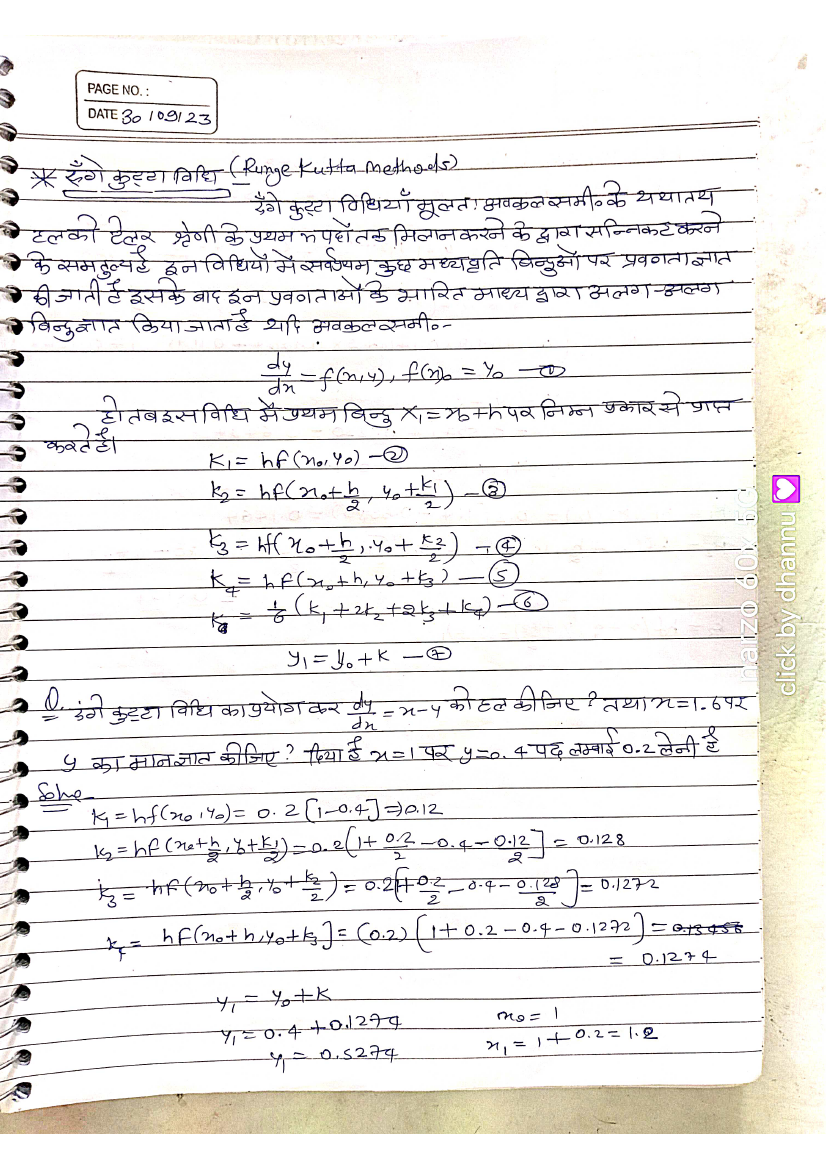 PAGE NO. :
DATE 30/09/23
* रुँगे कुट्टा विधि (Runge Kutta Methods)
रुँगे कुट्टा विधियाँ मूलतः अवकल समी० के यथातथ
हल को टेलर श्रेणी के प्रथम n पदों तक मिलान करने के द्वारा सन्निकट करने
के समतुल्य है इन विधियों में सर्वप्रथम कुछ मध्यवृति बिन्दुओं पर प्रवणता ज्ञात
की जाती है इसके बाद इन प्रवणताओं के भारित माध्य द्वारा अलग-अलग
बिन्दु ज्ञात किया जाता है यदि अवकल समी०-
dy/dx = f(x,y), f(x)₀ = y₀ — ①
हो तब इस विधि में प्रथम बिन्दु X₁ = x₀+h पर निम्न प्रकार से प्राप्त
करते हैं।
K₁ = hf(x₀,y₀) — ②
k₂ = hf(x₀+h/2, y₀+k₁/2) — ③
k₃ = hf(x₀+h/2, y₀+k₂/2) — ④
K₄ = hf(x₀+h, y₀+k₃) — ⑤
K = 1/6 (k₁+2k₂+2k₃+k₄) — ⑥
y₁ = y₀+k — ⑦
Q. रुंगे कुट्टा विधि का प्रयोग कर dy/dx = x-y को हल कीजिए? तथा x=1.6 पर
y का मान ज्ञात कीजिए? दिया है x=1 पर y=0.4 पद लम्बाई 0.2 लेनी है
Solve
K₁ = hf(x₀,y₀) = 0.2[1-0.4] ⇒ 0.12
k₂ = hf(x₀+h/2, y₀+k₁/2) = 0.2[1+0.2/2-0.4-0.12/2] = 0.128
k₃ = hf(x₀+h/2, y₀+k₂/2) = 0.2[1+0.2/2-0.4-0.128/2] = 0.1272
k₄ = hf(x₀+h, y₀+k₃] = (0.2)[1+0.2-0.4-0.1272] =
= 0.1274
y₁ = y₀+k
y₁ = 0.4+0.1274
y₁ = 0.5274
x₀ = 1
x₁ = 1+0.2 = 1.2
narzo 60x 5G
click by dhannu